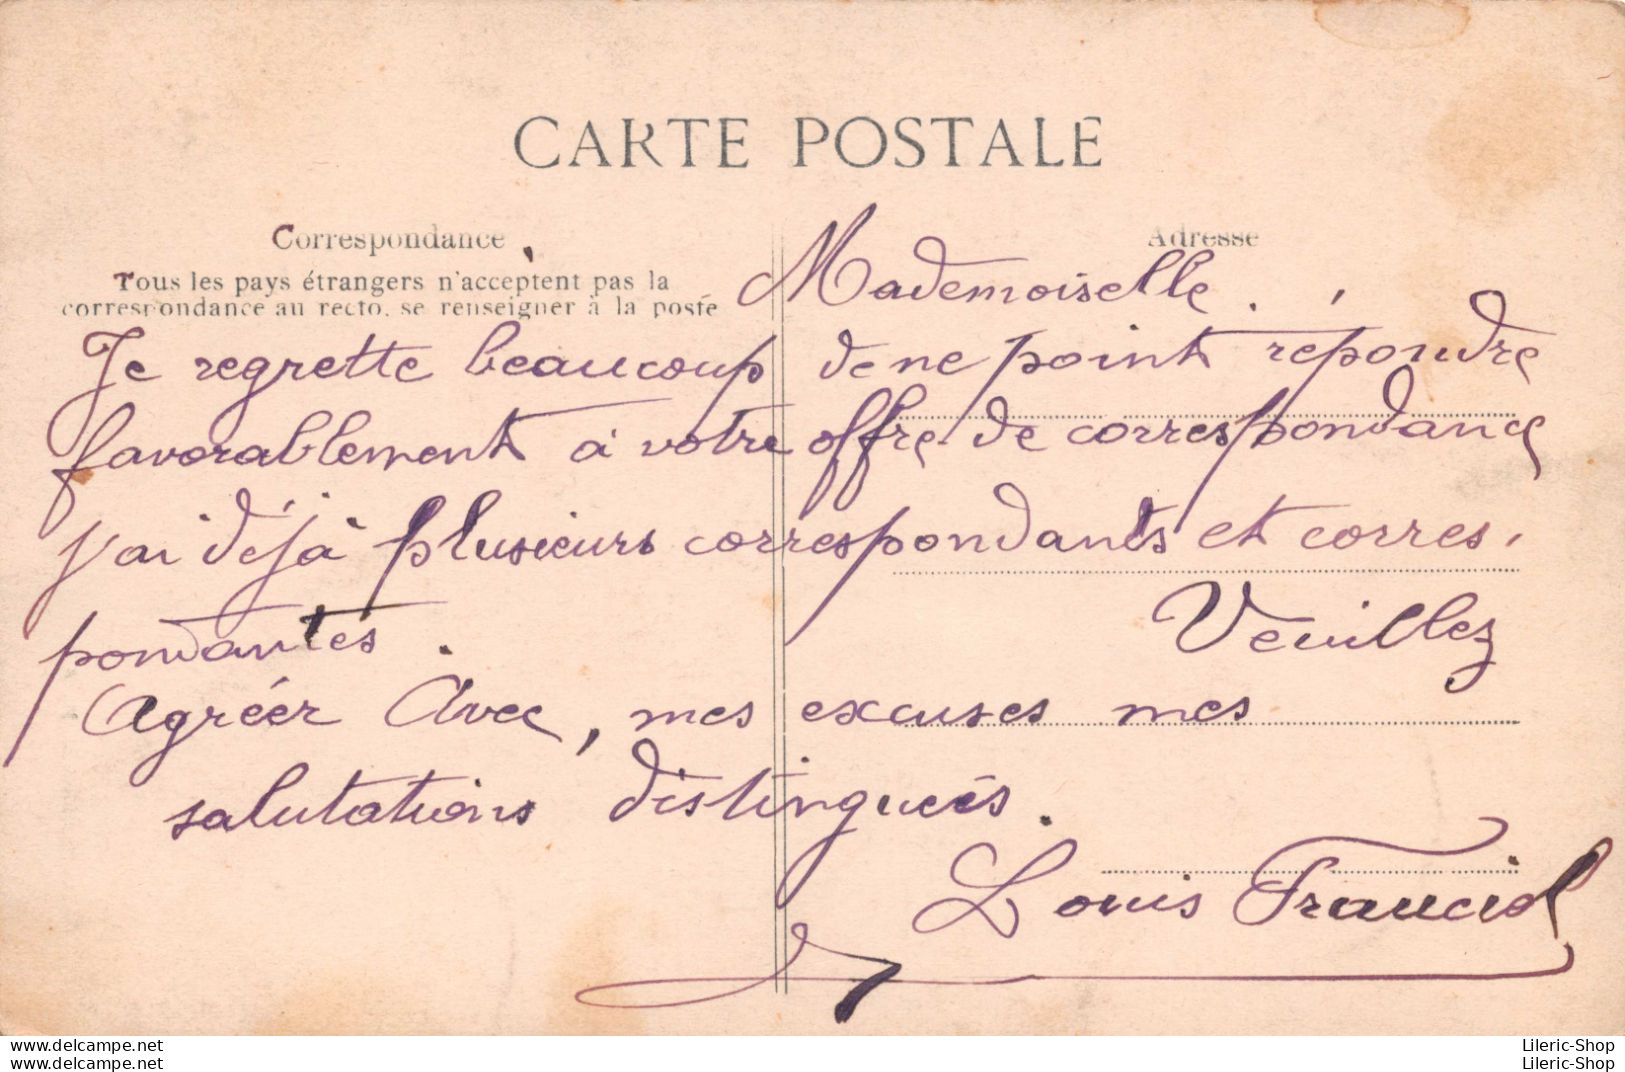 CARTE POSTALE
Correspondance
Adresse
Tous les pays étrangers n'acceptent pas la
correspondance au recto, se renseigner à la poste
Mademoiselle.
Je regrette beaucoup de ne point répondre
favorablement à votre offre de correspondance
j'ai déjà plusieurs correspondants et corres.
pondantes. Veuillez
Agréer Avec, mes excuses mes
salutations distinguées.
Louis
www.delcampe.net
www.delcampe.net
Lileric-Shop
Lileric-Shop